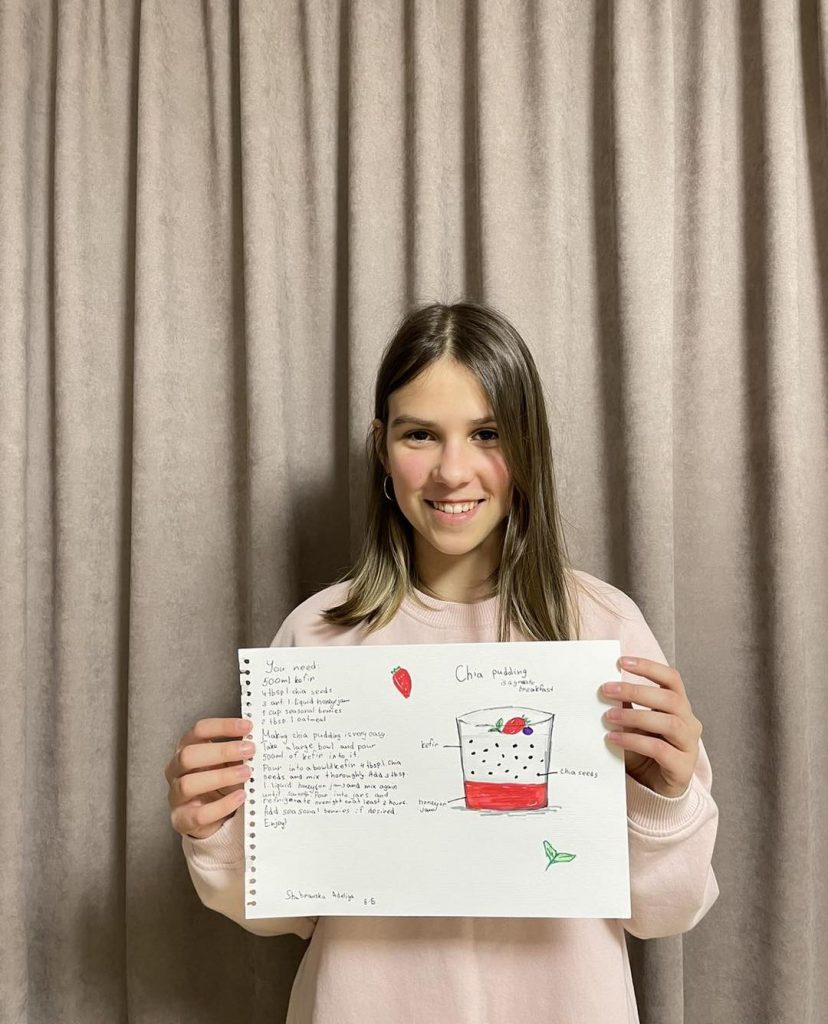 You need:
500ml kefir
4 tbsp. l chia seeds
3 art. l. liquid honey
1 cup seasonal berries
2 tbsp. l oatmeal
Making chia pudding is very easy.
Take a large bowl and pour
500ml of kefir into it
Pour into a bowl kefir 4 tbsp. l. chia
seeds and mix thoroughly. Add 3 tbsp.
l. liquid honey or jam and mix again
until smooth. Pour into jars and
refrigerate overnight or at least 2 hours.
Add seasonal berries if desired.
Enjoy!
Chia pudding
is a great
breakfast
kefir
chia seeds
honey or
jam
Adeliya
6-Б